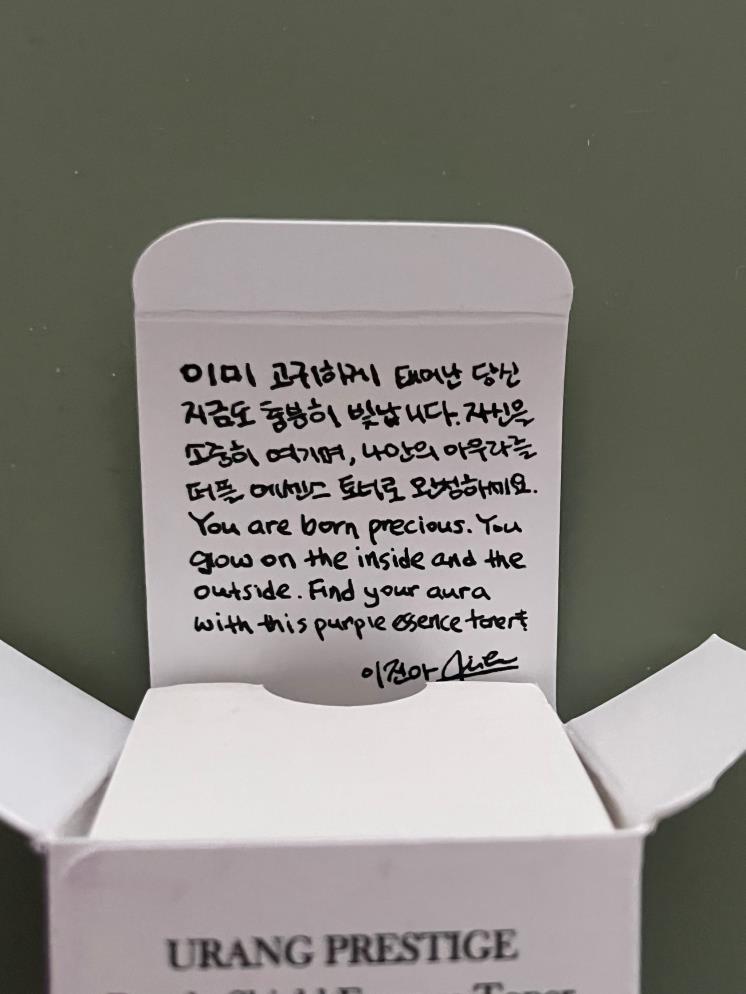 이미 고귀하게 태어난 당신
지금도 충분히 빛납니다. 자신을
소중히 여기며, 나만의 아우라를
퍼플 에센스 토너로 완성하세요.
You are born precious. You
glow on the inside and the
outside. Find your aura
with this purple essence toner
이진아
URANG PRESTIGE